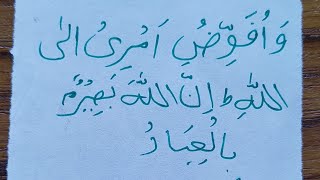 وَاُفَوِّضُ اَمْرِیْ اِلَی
اللّٰهِ ط اِنَّ اللّٰهَ بَصِیْرٌم
بِالْعِبَادِ